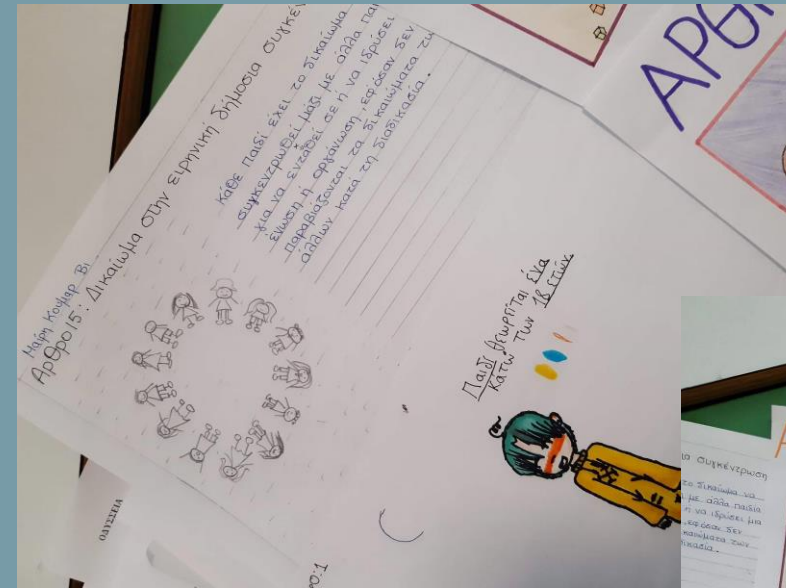 Μαίρη Κουμαρ Β1
Αρθρο 15: Δικαίωμα στην ειρηνική δημόσια συγκέν
Κάθε παιδί έχει το δικαίωμα
συγκεντρωθεί μαζί με άλλα παι
για να ενταθεί σε ή να ιδρύσει
ένωση ή οργάνωση, εφόσον δεν
παραβιάζονται τα δικαιώματα τω
άλλων κατά τη διαδικασία.
Παιδί θεωρείται ένα
κάτω των 18 ετών.
ΑΡΘ
ΟΔΥΣΣΕΙΑ
ρο:1
ια συγκέντρωση
το δικαίωμα να
με άλλα παιδιά
ή να ιδρύσει μια
εφόσον δεν
καιώματα των
δικασία.